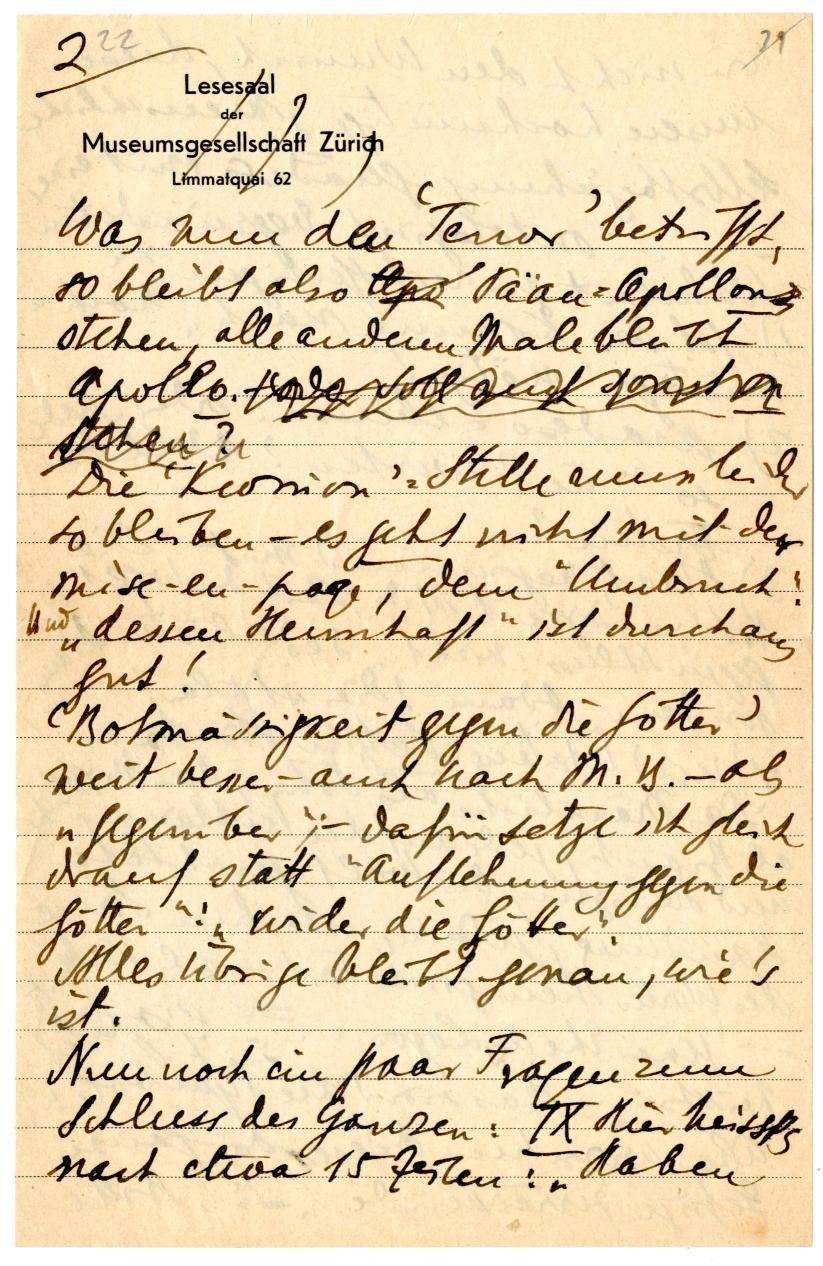 2 22 21
Lesesaal
der
Museumsgesellschaft Zürich
Limmatquai 62
Was nun den 'Terror' betrifft,
so bleibt also Apo Päan=Apollon
stehen, alle anderen Male bleibt
Apollo. soll auch sonst on
stehen?
Die 'Kronion'=Stelle muss leider
so bleiben – es geht nicht mit der
mise-en-page, dem "Umbruch".
Und „dessen Herrschaft" ist durchaus
gut!
'Botmässigkeit gegen die Götter'
weit besser – auch nach M. U. – als
„gegenüber"; – dafür setze ich gleich
drauf statt "Auflehnung gegen die
Götter": „wider die Götter".
Alles Übrige bleibt genau, wie's
ist.
Nun noch ein paar Fragen zum
Schluss des Ganzen: IX Hier heisst's
nach etwa 15 Zeilen: „Haben